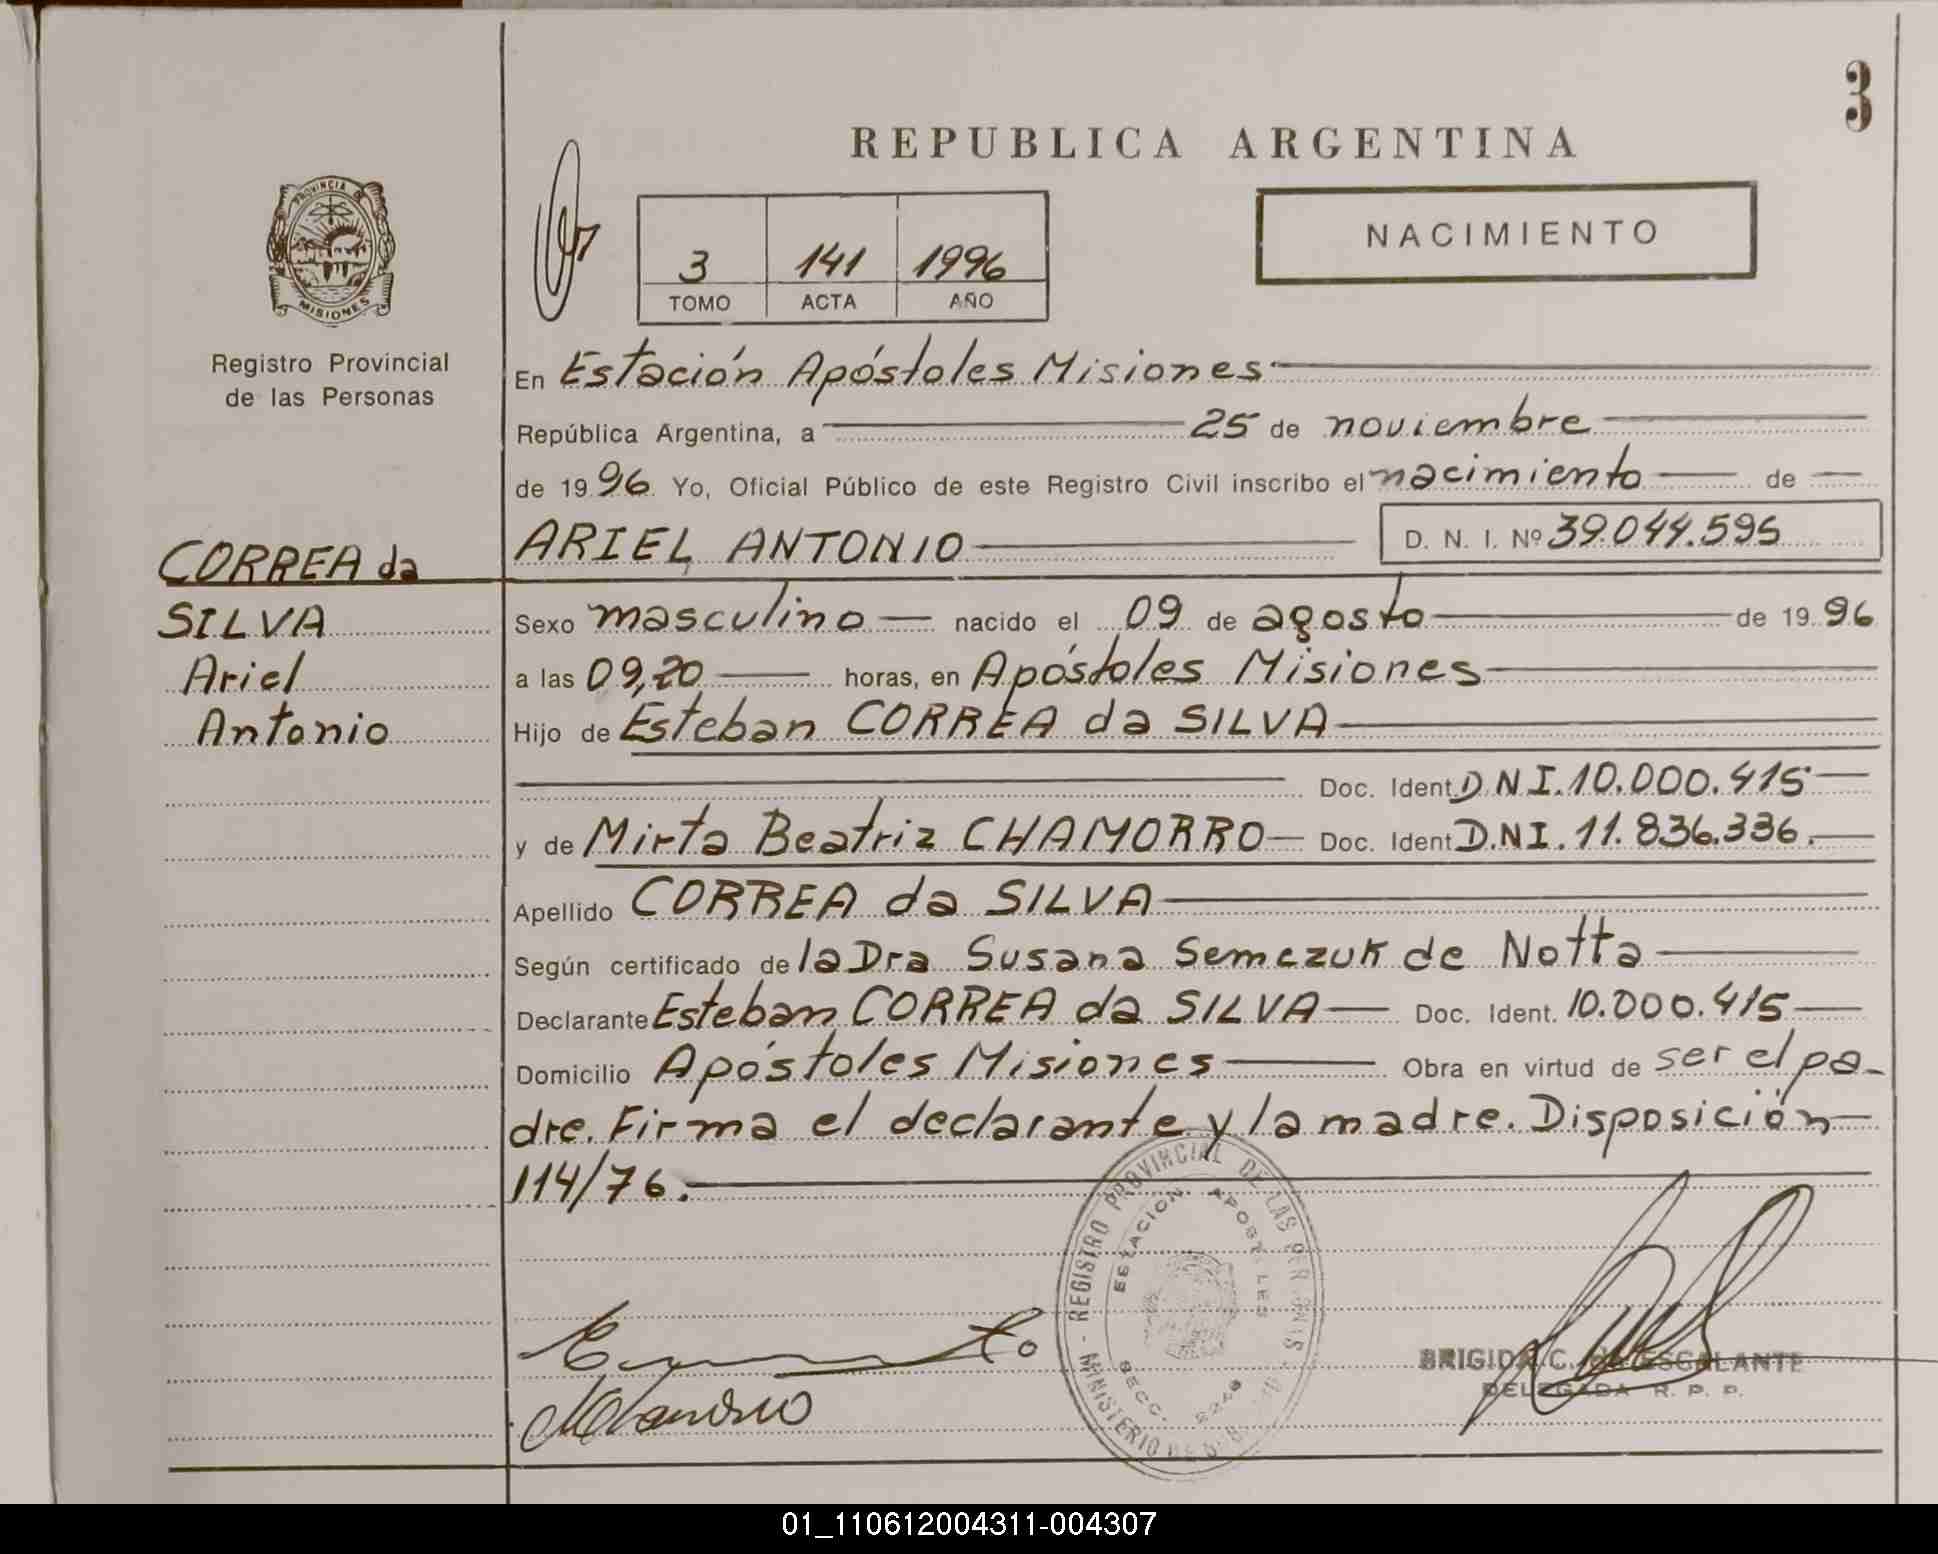 3
REPUBLICA ARGENTINA
NACIMIENTO
PROVINCIA DE
MISIONES
Registro Provincial
de las Personas
3 141 1996
TOMO ACTA AÑO
En Estación Apóstoles Misiones
República Argentina, a 25 de noviembre
de 1996 Yo, Oficial Público de este Registro Civil inscribo el nacimiento de
ARIEL ANTONIO D. N. I. Nº 39.044.595
CORREA da
SILVA
Ariel
Antonio
Sexo masculino nacido el 09 de agosto de 1996
a las 09,20 horas, en Apóstoles Misiones
Hijo de Esteban CORREA da SILVA
Doc. Ident. D.N.I. 10.000.415
y de Mirta Beatriz CHAMORRO Doc. Ident D.NI. 11.836.336.
Apellido CORREA da SILVA
Según certificado de la Dra Susana Semczuk de Notta
Declarante Esteban CORREA da SILVA Doc. Ident. 10.000.415
Domicilio Apóstoles Misiones Obra en virtud de ser el pa-
dre. Firma el declarante y la madre. Disposición
114/76.
MINISTERIO DE - REGISTRO PROVINCIAL DE LAS PERSONAS
ESTACION APOSTOLES
SECC.
BRIGIDA C. de ESCALANTE
DELEGADA R. P. P.
01_110612004311-004307